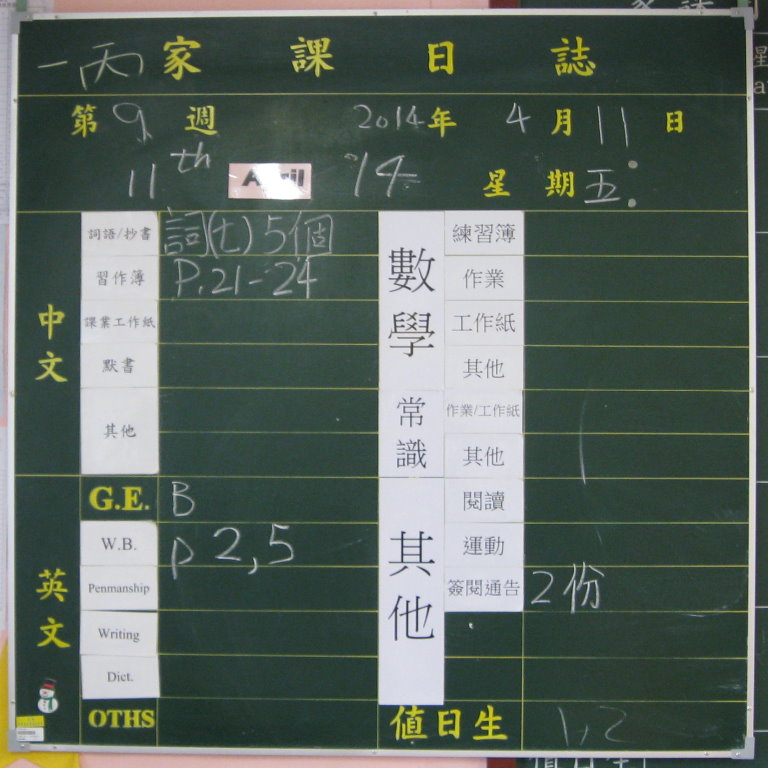 一丙 家課日誌
第9週 2014年4月11日
11th April '14 星期五
中文
詞語/抄書 詞(七) 5個
習作簿 P.21-24
課業工作紙
默書
其他
英文
G.E. B
W.B. p 2,5
Penmanship
Writing
Dict.
OTHS
數學
練習簿
作業
工作紙
其他
常識
作業/工作紙
其他
其他
閱讀
運動
簽閱通告 2份
值日生 1,2